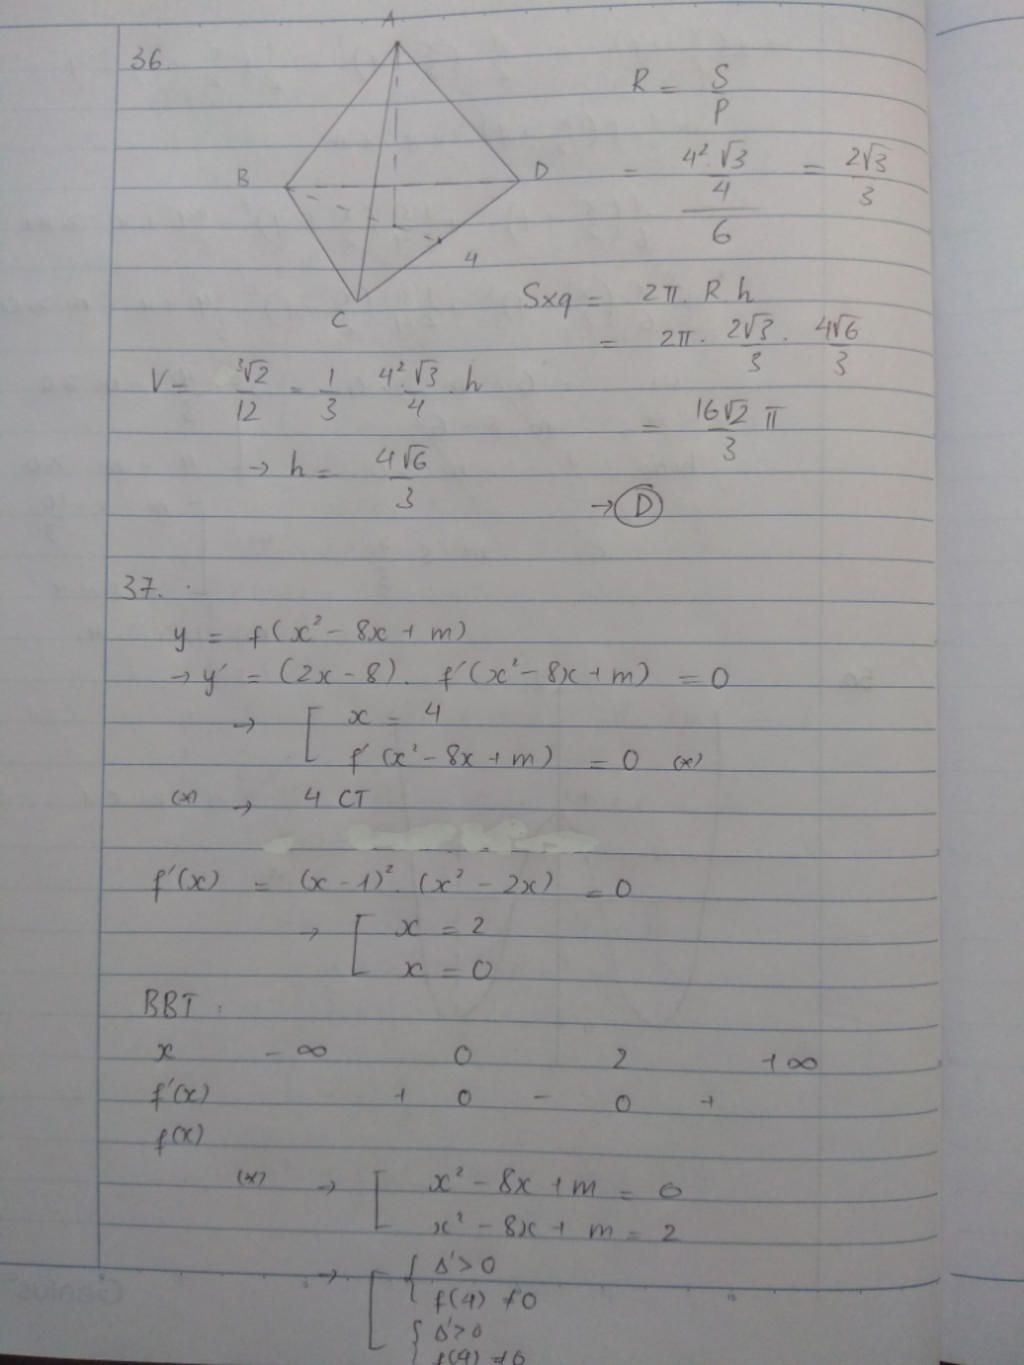 36.
A
B
D
4
C
R = S/P
= (4². √3/4)/6 = 2√3/3
Sxq = 2π. R h
= 2π . 2√3/3 . 4√6/3
= 16√2/3 π
→ D
V = ³√2/12 = 1/3 . 4².√3/4 . h
→ h = 4√6/3
37.
y = f(x² - 8x + m)
→ y' = (2x - 8). f'(x² - 8x + m) = 0
→ [ x = 4
f'(x² - 8x + m) = 0 (*)
(*) → 4 CT
f'(x) = (x - 1)². (x² - 2x) = 0
→ [ x = 2
x = 0
BBT :
x -∞ 0 2 +∞
f'(x) + 0 - 0 +
f(x)
(*) → [ x² - 8x + m = 0
x² - 8x + m = 2
→ [ { Δ' > 0
f(4) ≠ 0
{ Δ' > 0
f(4) ≠ 0